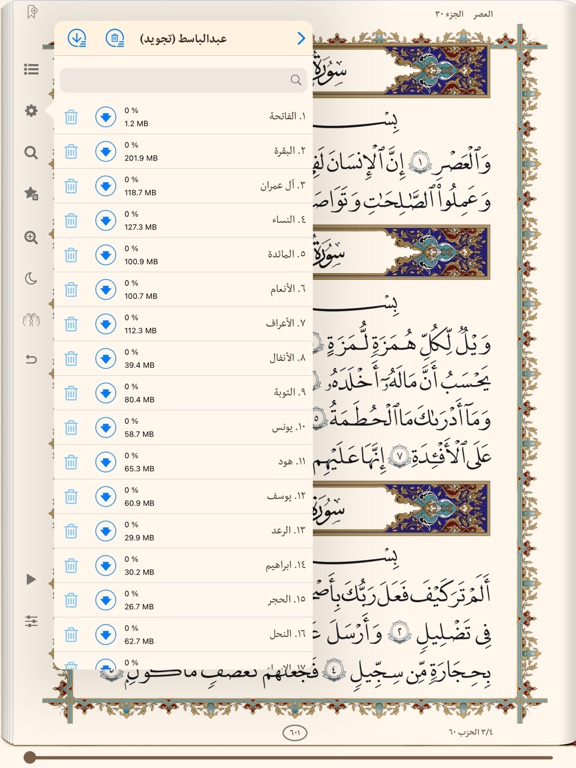 العصر الجزء ٣٠
عبدالباسط (تجويد)
١. الفاتحة
0 %
1.2 MB
٢. البقرة
0 %
201.9 MB
٣. آل عمران
0 %
118.7 MB
٤. النساء
0 %
127.3 MB
٥. المائدة
0 %
100.9 MB
٦. الأنعام
0 %
100.7 MB
٧. الأعراف
0 %
112.3 MB
٨. الأنفال
0 %
39.4 MB
٩. التوبة
0 %
80.4 MB
١٠. يونس
0 %
58.7 MB
١١. هود
0 %
65.3 MB
١٢. يوسف
0 %
60.9 MB
١٣. الرعد
0 %
29.9 MB
١٤. ابراهيم
0 %
30.2 MB
١٥. الحجر
0 %
26.7 MB
١٦. النحل
0 %
62.7 MB
0 %
سورة
وَالْعَصْرِ ١ إِنَّ الْإِنسَانَ
وَعَمِلُوا الصَّالِحَاتِ وَتَوَاصَ
سورة
وَيْلٌ لِّكُلِّ هُمَزَةٍ لُّمَزَةٍ
يَحْسَبُ أَنَّ مَالَهُ أَخْلَدَهُ
وَمَا أَدْرَاكَ مَا الْحُطَمَةُ ٥
عَلَى الْأَفْئِدَةِ ٧ إِنَّهَا عَلَيْهِم
سورة
أَلَمْ تَرَ كَيْفَ فَعَلَ رَبُّكَ بِأَصْ
فِي تَضْلِيلٍ ٢ وَأَرْسَلَ عَ
بِحِجَارَةٍ مِّن سِجِّيلٍ ٤ فَجَعَلَهُمْ كَعَصْفٍ مَّأْكُولٍ
٣/٤ الحزب ٦٠
٦٠١